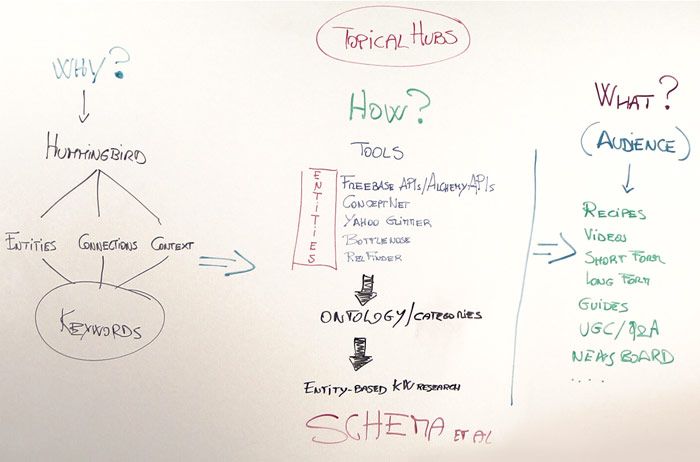 TOPICAL HUBS
WHY?
HUMMINGBIRD
ENTITIES CONNECTIONS CONTEXT
KEYWORDS
HOW?
TOOLS
ENTITIES
FREEBASE APIs/ALCHEMY APIs
CONCEPTNET
YAHOO GLIMMER
BOTTLENOSE
RELFINDER
ONTOLOGY/CATEGORIES
ENTITY-BASED KW RESEARCH
SCHEMA ET AL
WHAT?
(AUDIENCE)
RECIPES
VIDEOS
SHORT FORM
LONG FORM
GUIDES
UGC/Q&A
NEWS BOARD
....